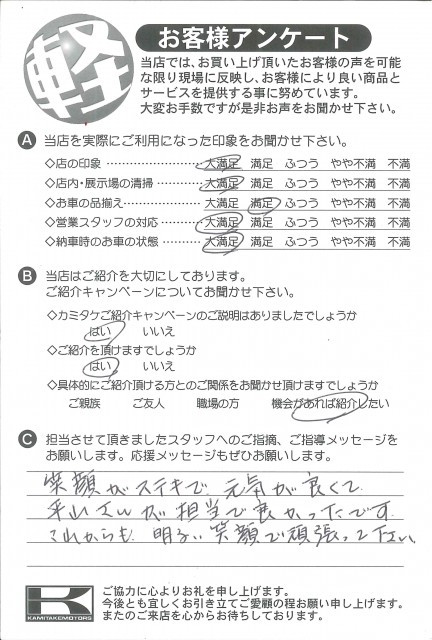 軽
お客様アンケート
当店では、お買い上げ頂いたお客様の声を可能
な限り現場に反映し、お客様により良い商品と
サービスを提供する事に努めています。
大変お手数ですが是非お声をお聞かせ下さい。
A 当店を実際にご利用になった印象をお聞かせ下さい。
◇店の印象 …………………… 大満足 満足 ふつう やや不満 不満
◇店内・展示場の清掃………… 大満足 満足 ふつう やや不満 不満
◇お車の品揃え………………… 大満足 満足 ふつう やや不満 不満
◇営業スタッフの対応………… 大満足 満足 ふつう やや不満 不満
◇納車時のお車の状態………… 大満足 満足 ふつう やや不満 不満
B 当店はご紹介を大切にしております。
ご紹介キャンペーンについてお聞かせ下さい。
◇カミタケご紹介キャンペーンのご説明はありましたでしょうか
はい いいえ
◇ご紹介を頂けますでしょうか
はい いいえ
◇具体的にご紹介頂ける方とのご関係をお聞かせ頂けますでしょうか
ご親族 ご友人 職場の方 機会があれば紹介したい
C 担当させて頂きましたスタッフへのご指摘、ご指導メッセージを
お願いします。応援メッセージもぜひお願いします。
笑顔がステキで 元気が良くて
平山さんが担当で良かったです。
これからも 明るい笑顔で頑張って下さい。
K
KAMITAKEMOTORS
ご協力に心よりお礼を申し上げます。
今後とも宜しくお引き立てご愛顧の程お願い申し上げます。
またのご来店を心からお待ちしております。